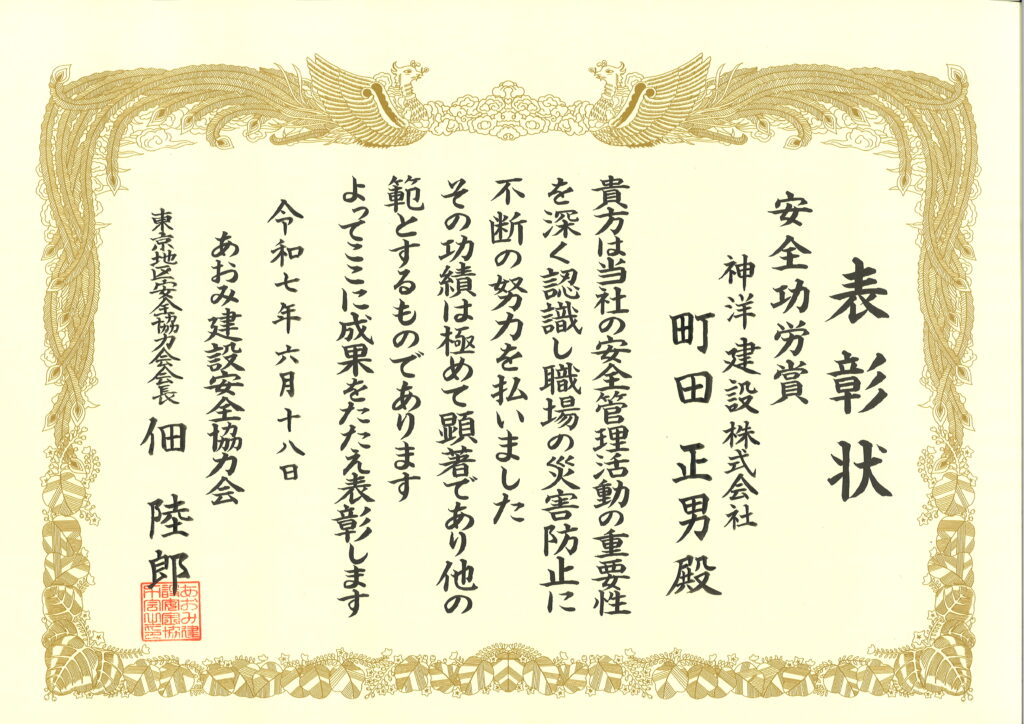 表彰状
安全功労賞
神洋建設株式会社
町田正男殿
貴方は当社の安全管理活動の重要性
を深く認識し職場の災害防止に
不断の努力を払いました
その功績は極めて顕著であり他の
範とするものであります
よってここに成果をたたえ表彰します
令和七年六月十八日
あおみ建設安全協力会
東京地区安全協力会会長 佃 陸郎
あおみ建